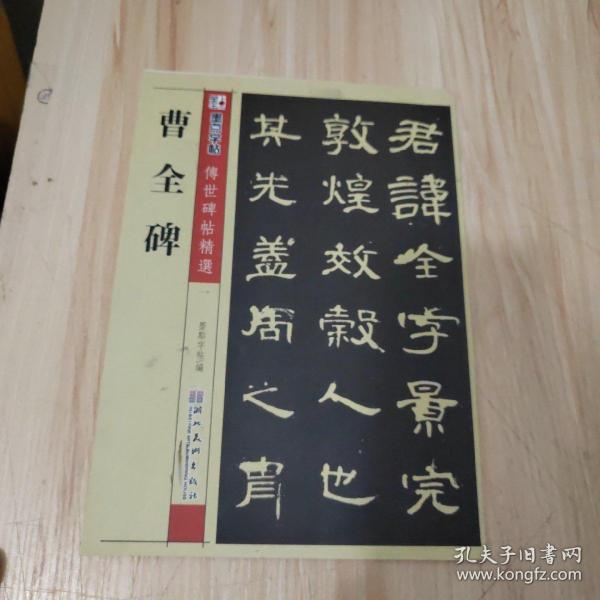 曹全碑
墨点字帖
傳世碑帖精選
墨點字帖 編
湖北美術出版社
君諱全字景完
敦煌效穀人也
其先蓋周之胄
孔夫子旧书网
www.kongfz.com